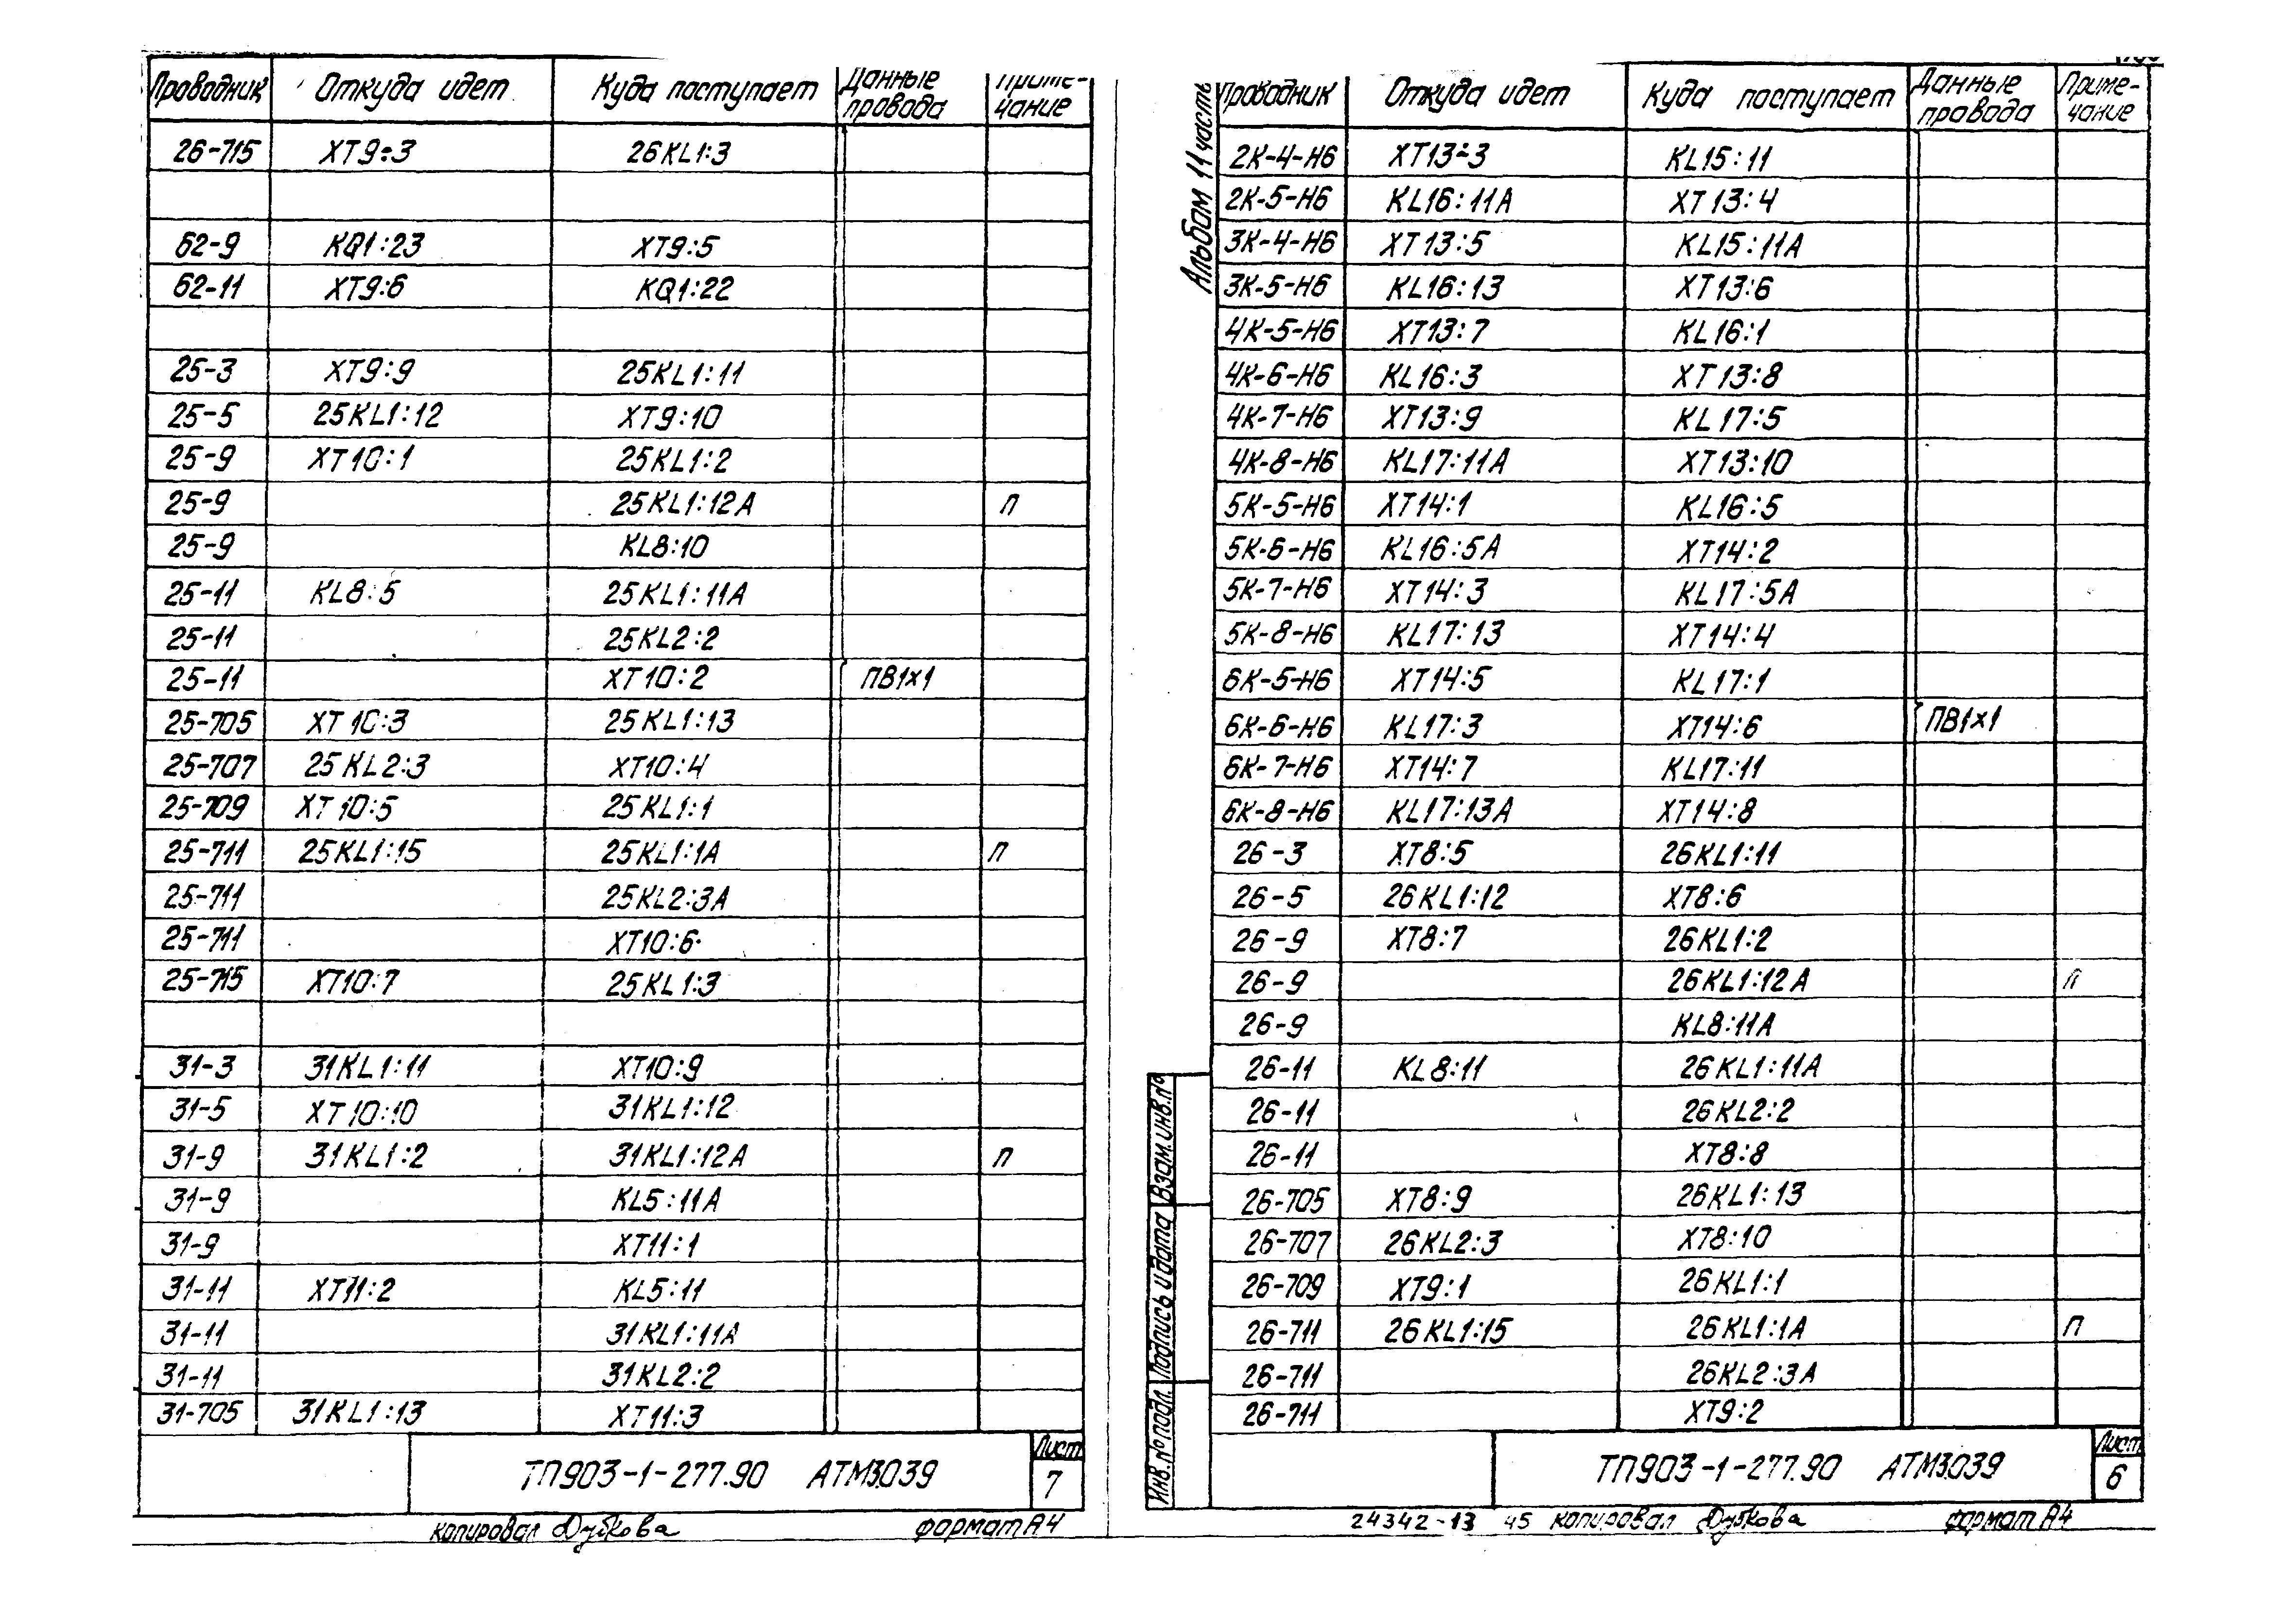 Проводник Откуда идет Куда поступает Данные провода Примечание
26-715 XT9:3 26KL1:3
62-9 KQ1:23 XT9:5
62-11 XT9:6 KQ1:22
25-3 XT9:9 25KL1:11
25-5 25KL1:12 XT9:10
25-9 XT10:1 25KL1:2
25-9 25KL1:12A П
25-9 KL8:10
25-11 KL8:5 25KL1:11A
25-11 25KL2:2
25-11 XT10:2 ПВ1х1
25-705 XT10:3 25KL1:13
25-707 25KL2:3 XT10:4
25-709 XT10:5 25KL1:1
25-711 25KL1:15 25KL1:1A П
25-711 25KL2:3A
25-711 XT10:6
25-715 XT10:7 25KL1:3
31-3 31KL1:11 XT10:9
31-5 XT10:10 31KL1:12
31-9 31KL1:2 31KL1:12A П
31-9 KL5:11A
31-9 XT11:1
31-11 XT11:2 KL5:11
31-11 31KL1:11A
31-11 31KL2:2
31-705 31KL1:13 XT11:3
ТП903-1-277.90 АТМ3.039 Лист 7
копировал Дубкова формат А4
Альбом 11 часть
Проводник Откуда идет Куда поступает Данные провода Примечание
2К-4-Н6 XT13:3 KL15:11
2К-5-Н6 KL16:11A XT13:4
3К-4-Н6 XT13:5 KL15:11A
3К-5-Н6 KL16:13 XT13:6
4К-5-Н6 XT13:7 KL16:1
4К-6-Н6 KL16:3 XT13:8
4К-7-Н6 XT13:9 KL17:5
4К-8-Н6 KL17:11A XT13:10
5К-5-Н6 XT14:1 KL16:5
5К-6-Н6 KL16:5A XT14:2
5К-7-Н6 XT14:3 KL17:5A
5К-8-Н6 KL17:13 XT14:4
6К-5-Н6 XT14:5 KL17:1
6К-6-Н6 KL17:3 XT14:6 ПВ1х1
6К-7-Н6 XT14:7 KL17:11
6К-8-Н6 KL17:13A XT14:8
26-3 XT8:5 26KL1:11
26-5 26KL1:12 XT8:6
26-9 XT8:7 26KL1:2
26-9 26KL1:12A П
26-9 KL8:11A
26-11 KL8:11 26KL1:11A
26-11 26KL2:2
26-11 XT8:8
26-705 XT8:9 26KL1:13
26-707 26KL2:3 XT8:10
26-709 XT9:1 26KL1:1
26-711 26KL1:15 26KL1:1A П
26-711 26KL2:3A
26-711 XT9:2
Инв.№подл. Подпись и дата Взам.инв.№
ТП903-1-277.90 АТМ3.039 Лист 6
24342-13 45 копировал Дубкова формат А4